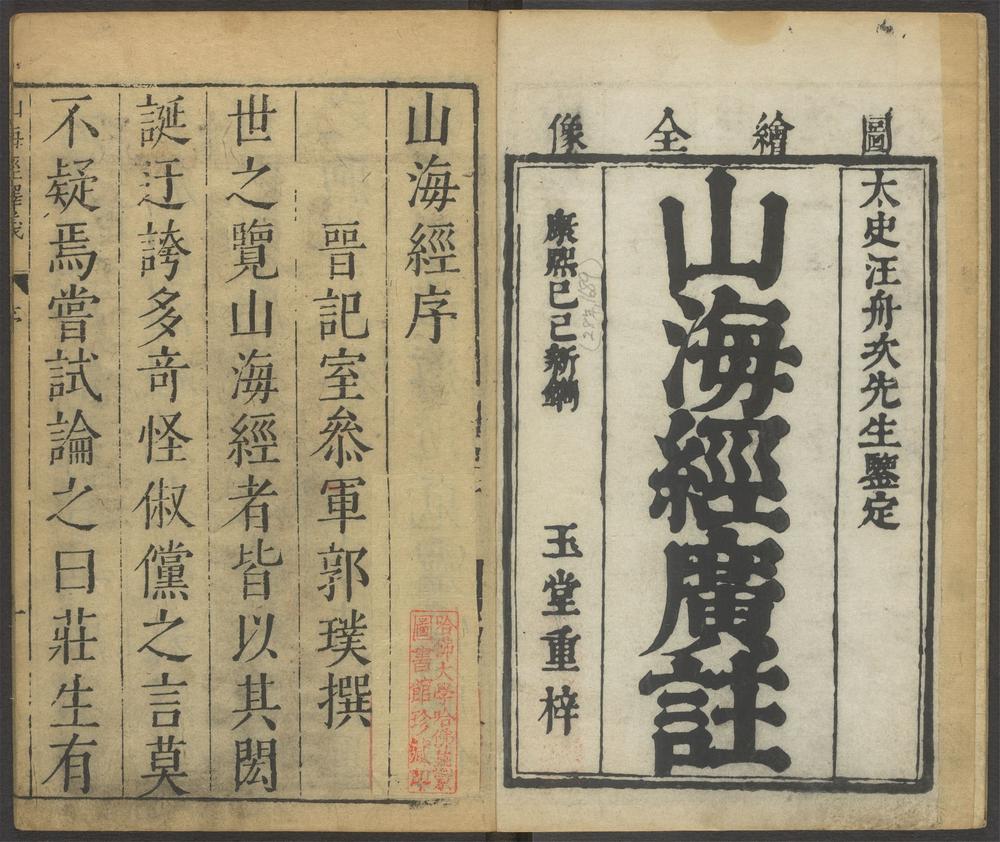 圖繪全像
太史汪舟次先生鑒定
山海經廣註
康熙己巳新鐫
(28年1689)
玉堂重梓
山海經序
晋記室叅軍郭璞撰
世之覽山海經者皆以其閎
誕迂誇多奇怪俶儻之言莫
不疑焉嘗試論之曰莊生有
山海經釋義
序
一
哈佛大學哈佛燕京
圖書館珍藏印